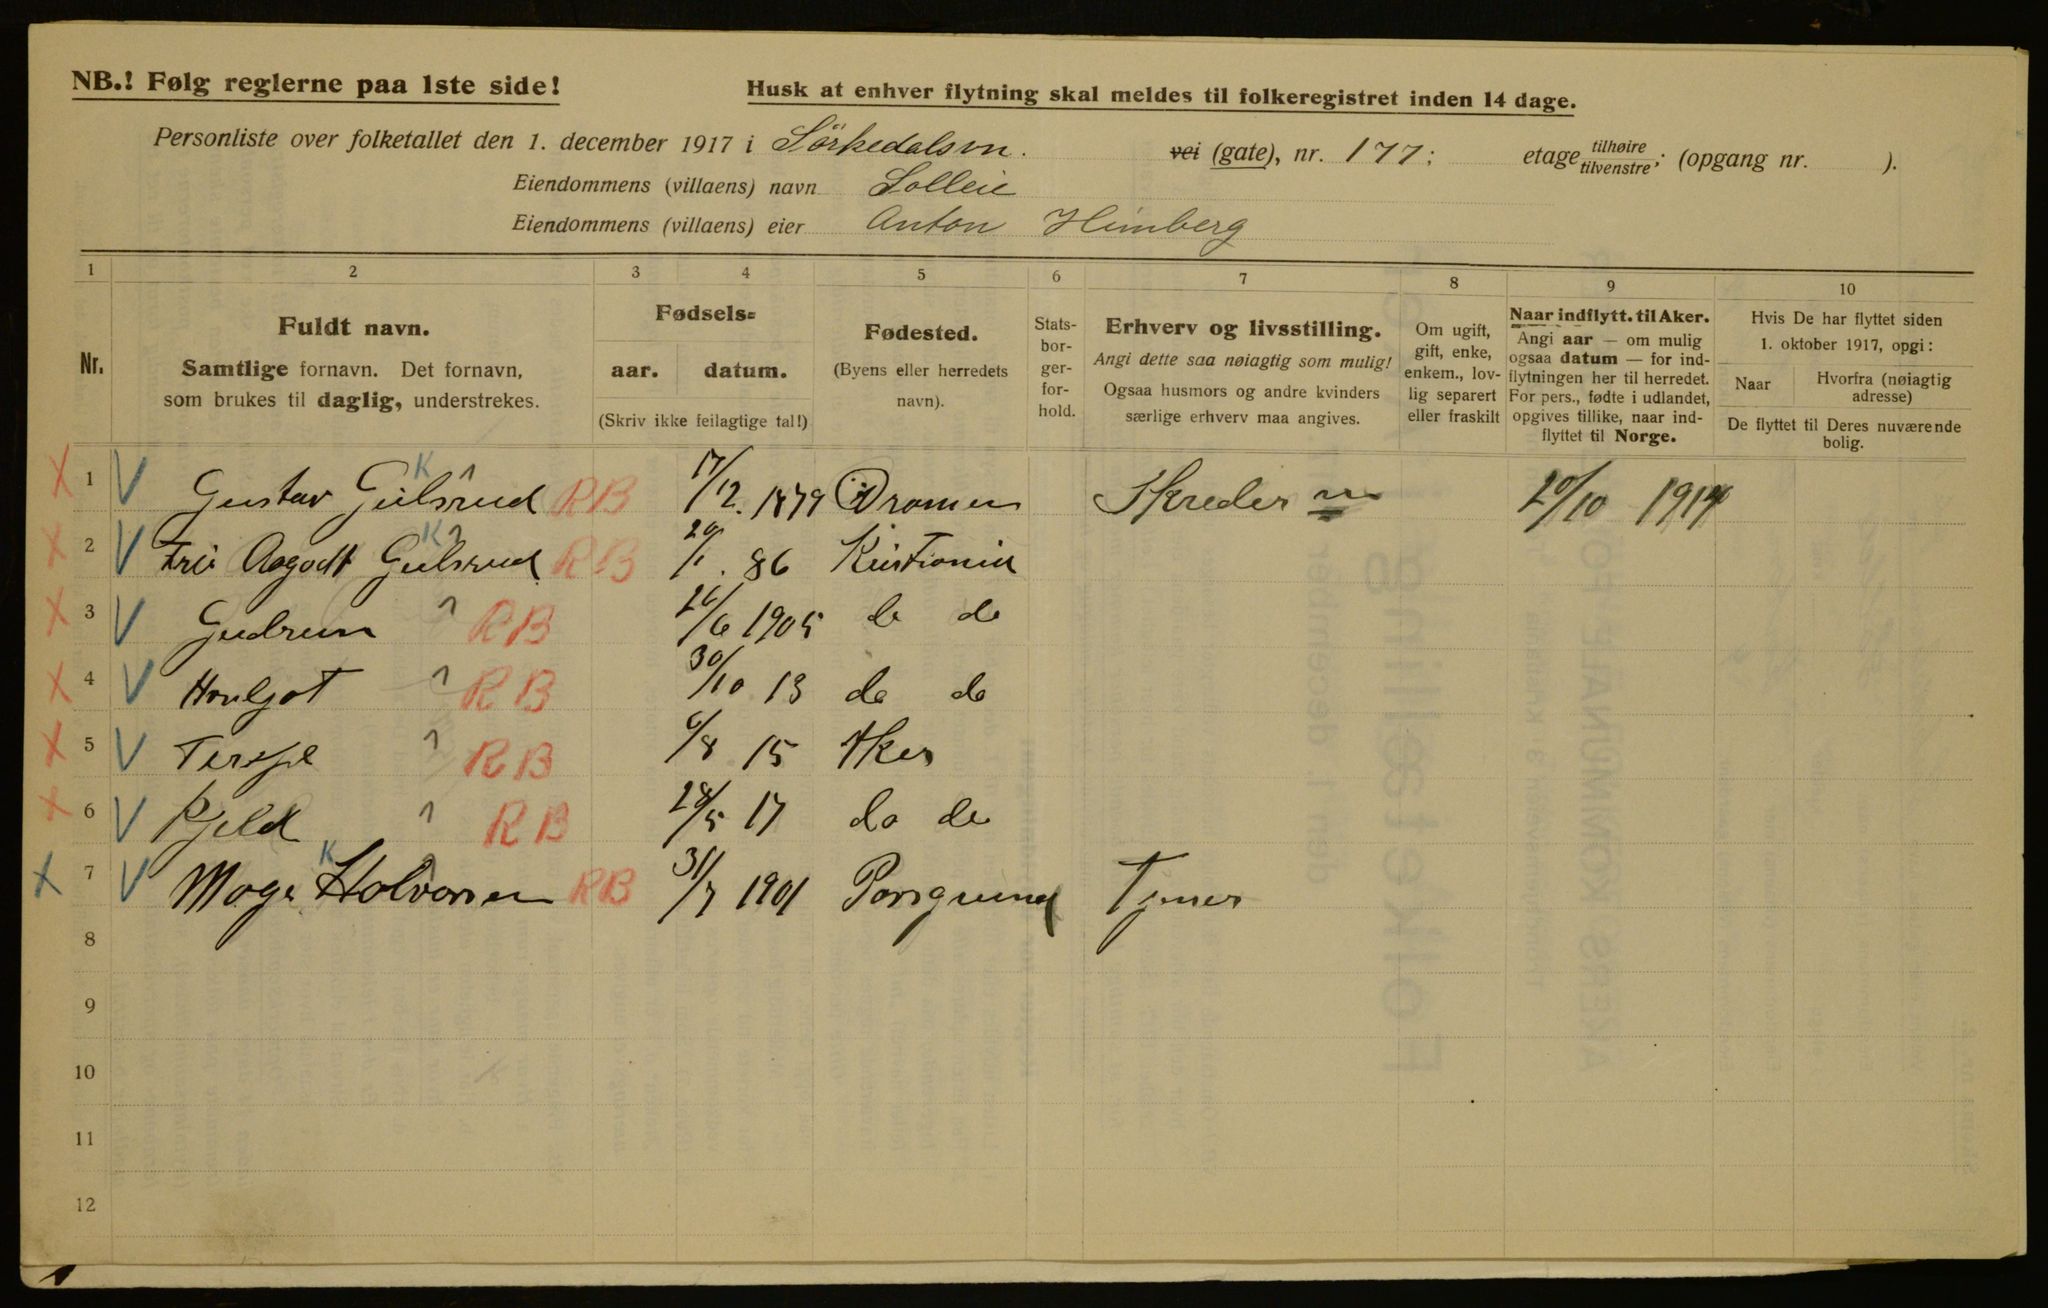 NB.! Følg reglerne paa 1ste side!
Husk at enhver flytning skal meldes til folkeregistret inden 14 dage.
Personliste over folketallet den 1. december 1917 i Sörkedalsvn. vei (gate), nr. 177; etage tilhøire tilvenstre; (opgang nr. ).
Eiendommens (villaens) navn Solleie
Eiendommens (villaens) eier Anton Himberg
1 2 3 4 5 6 7 8 9 10
Nr.
Fuldt navn.
Samtlige fornavn. Det fornavn,
som brukes til daglig, understrekes.
Fødsels=
aar. datum.
(Skriv ikke feilagtige tal!)
Fødested.
(Byens eller herredets
navn).
Stats-
bor-
ger-
for-
hold.
Erhverv og livsstilling.
Angi dette saa nøiagtig som mulig!
Ogsaa husmors og andre kvinders
særlige erhverv maa angives.
Om ugift,
gift, enke,
enkem., lov-
lig separert
eller fraskilt
Naar indflytt. til Aker.
Angi aar — om mulig
ogsaa datum — for ind-
flytningen her til herredet.
For pers., fødte i udlandet,
opgives tillike, naar ind-
flyttet til Norge.
Hvis De har flyttet siden
1. oktober 1917, opgi:
Naar
Hvorfra (nøiagtig
adresse)
De flyttet til Deres nuværende
bolig.
X 1 V Gustav Gulsrud RB 17/12. 1879 Dramen Skreder 20/10 1914
X 2 V Aagodt Gulsrud RB 86 Kristiania
X 3 V Gudrun RB 26/6 1905 do do
X 4 V RB 30/10 13 do do
X 5 V Terje RB 6/8 15 Aker
X 6 V Kjeld RB 28/5 17 do do
X 7 V Holvorsen RB 31/7 1901 Porsgrund
8
9
10
11
12